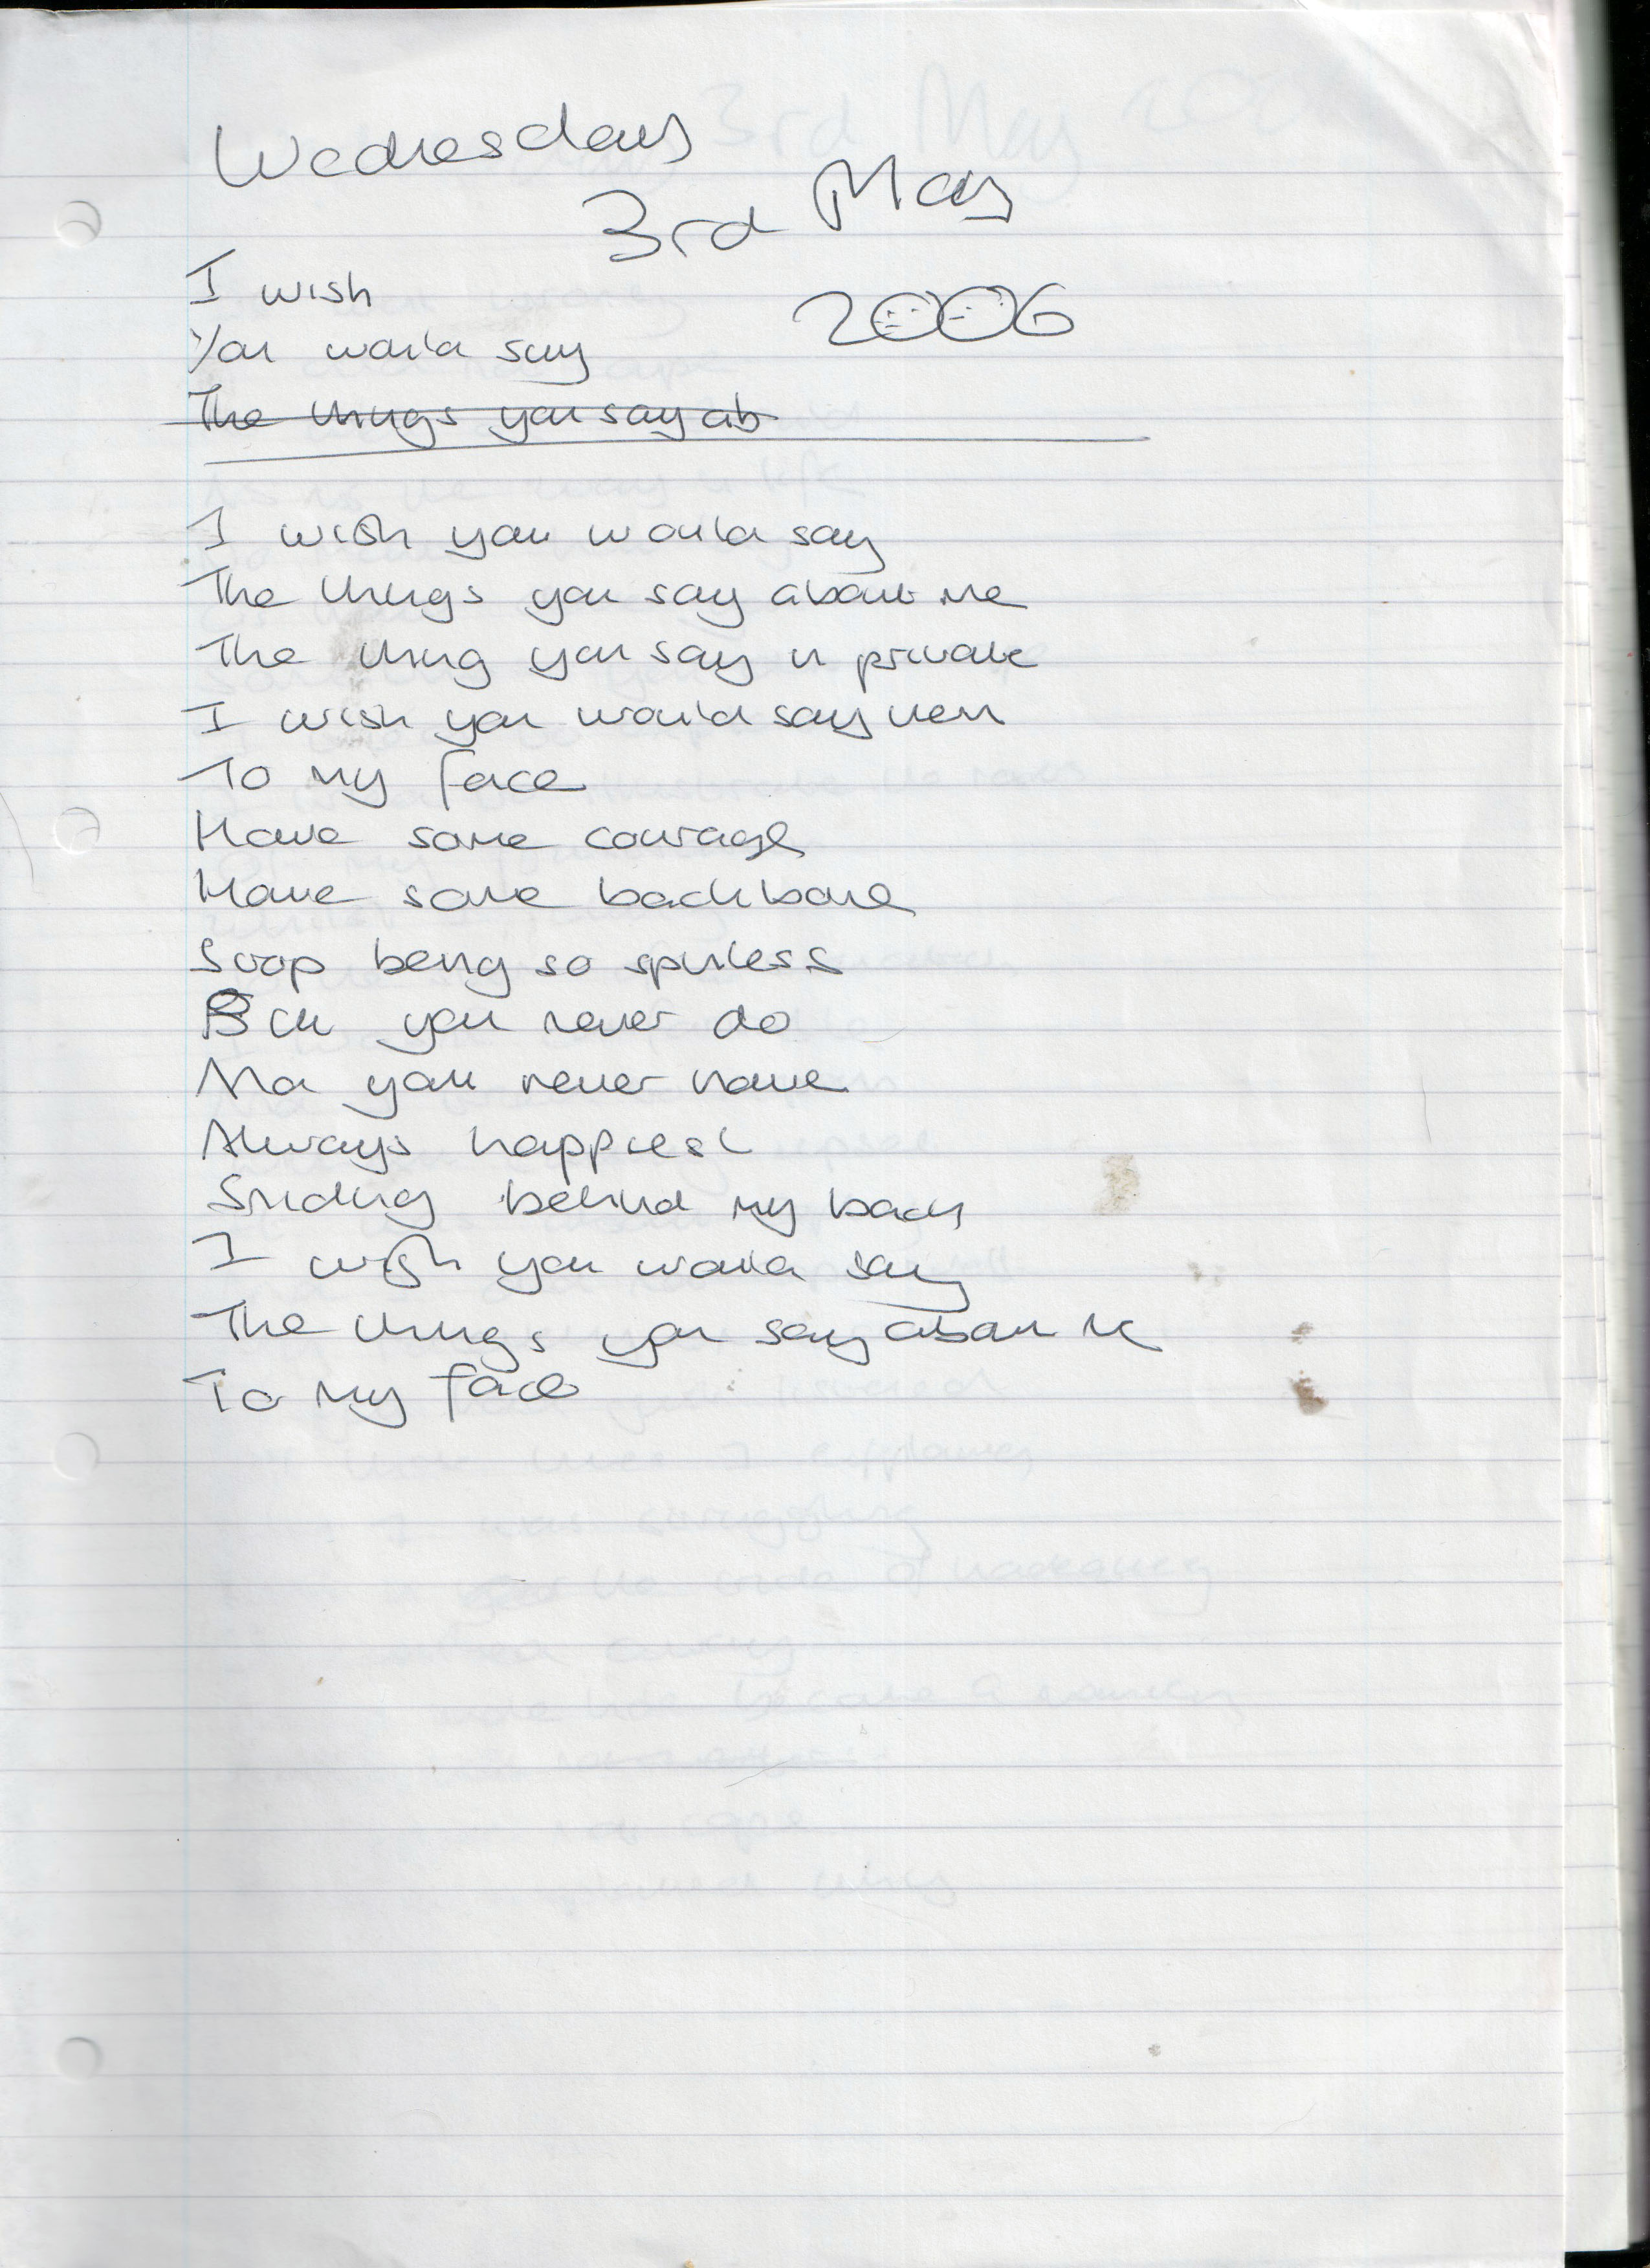 Wednesday
3rd May
2006
I wish
You would say
The things you say ab
I wish you would say
The things you say about me
The thing you say in private
I wish you would say them
To my face
Have some courage
Have some backbone
Stop being so spineless
But you never do
No you never have
Always happiest
Sniding behind my back
I wish you would say
The things you say about me
To my face